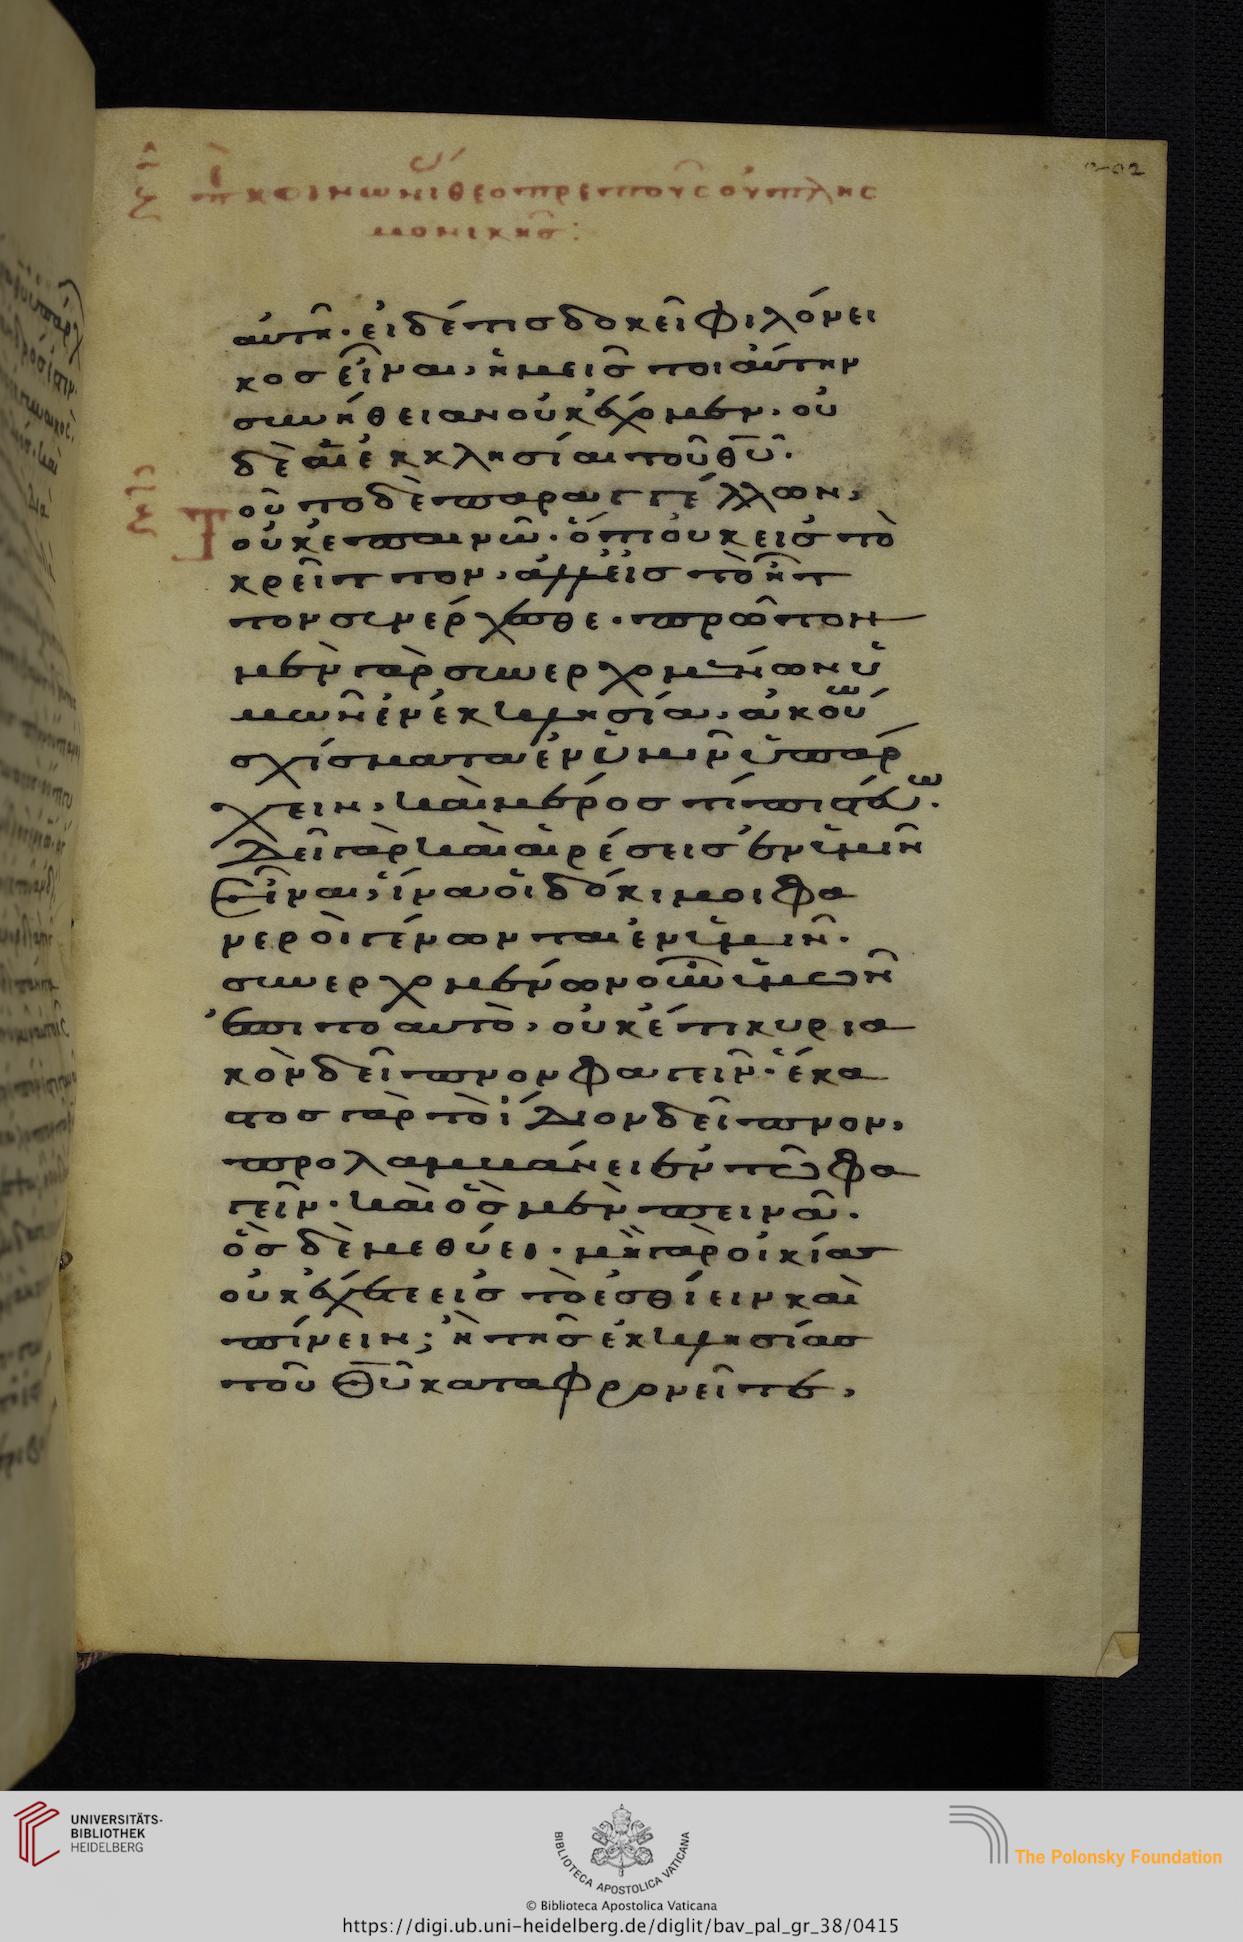 ξ πκοινωνί θεοπρεποῦς οὐ πλησ
μονικῆς:
202
αύτη. εἰ δέ τισ δοκεῖ φιλόνει
κοσ εἶναι, ἡμεῖσ τοιαύτην
συνήθειαν οὐκ ἔχομεν. οὐ
δὲ αἱ ἐκκλησίαι τοῦ θῦ.
τοῦτο δὲ παραγγέλλων,
οὐκ επαινῶ. ὅτι οὐκ εἰσ τὸ
κρεῖττον, ἀλλ' εἰσ τὸ ἧτ
τον συνέρχεσθε. πρῶτον
μὲν γὰρ συνερχομένων ὑ
μῶν ἐν ἐκκλησία, ἀκούω
σχίσματα ἐν ὑμῖν ὑπάρ
χειν, καὶ μέροσ τί πιστεύω.
δεῖ γὰρ καὶ αἱρέσεισ ἐν ὑμῖν
εἶναι, ἵνα οἱ δόκιμοι φα
νεροὶ γένωνται ἐν ὑμῖν.
συνερχομένων οὖν ὑμῶν
ἐπι το αυτὸ, οὐκ έστι κυρια
κὸν δεῖπνον φαγεῖν. ἕκα
στοσ γὰρ τὸ ἴδιον δεῖπνον,
προλαμβάνει ἐν τῶ φα
γεῖν. καὶ ὃσ μὲν πεινᾶ.
ὃσ δὲ μεθύει. μὴ γὰρ οἰκίασ
οὐκ ἔχετε εἰσ τὸ ἐσθίειν καὶ
πίνειν; ἢ τῆσ ἐκκλησίασ
τοῦ θῦ καταφρονεῖτε,
UNIVERSITÄTS-
BIBLIOTHEK
HEIDELBERG
BIBLIOTECA APOSTOLICA VATICANA
The Polonsky Foundation
© Biblioteca Apostolica Vaticana
https://digi.ub.uni-heidelberg.de/diglit/bav_pal_gr_38/0415